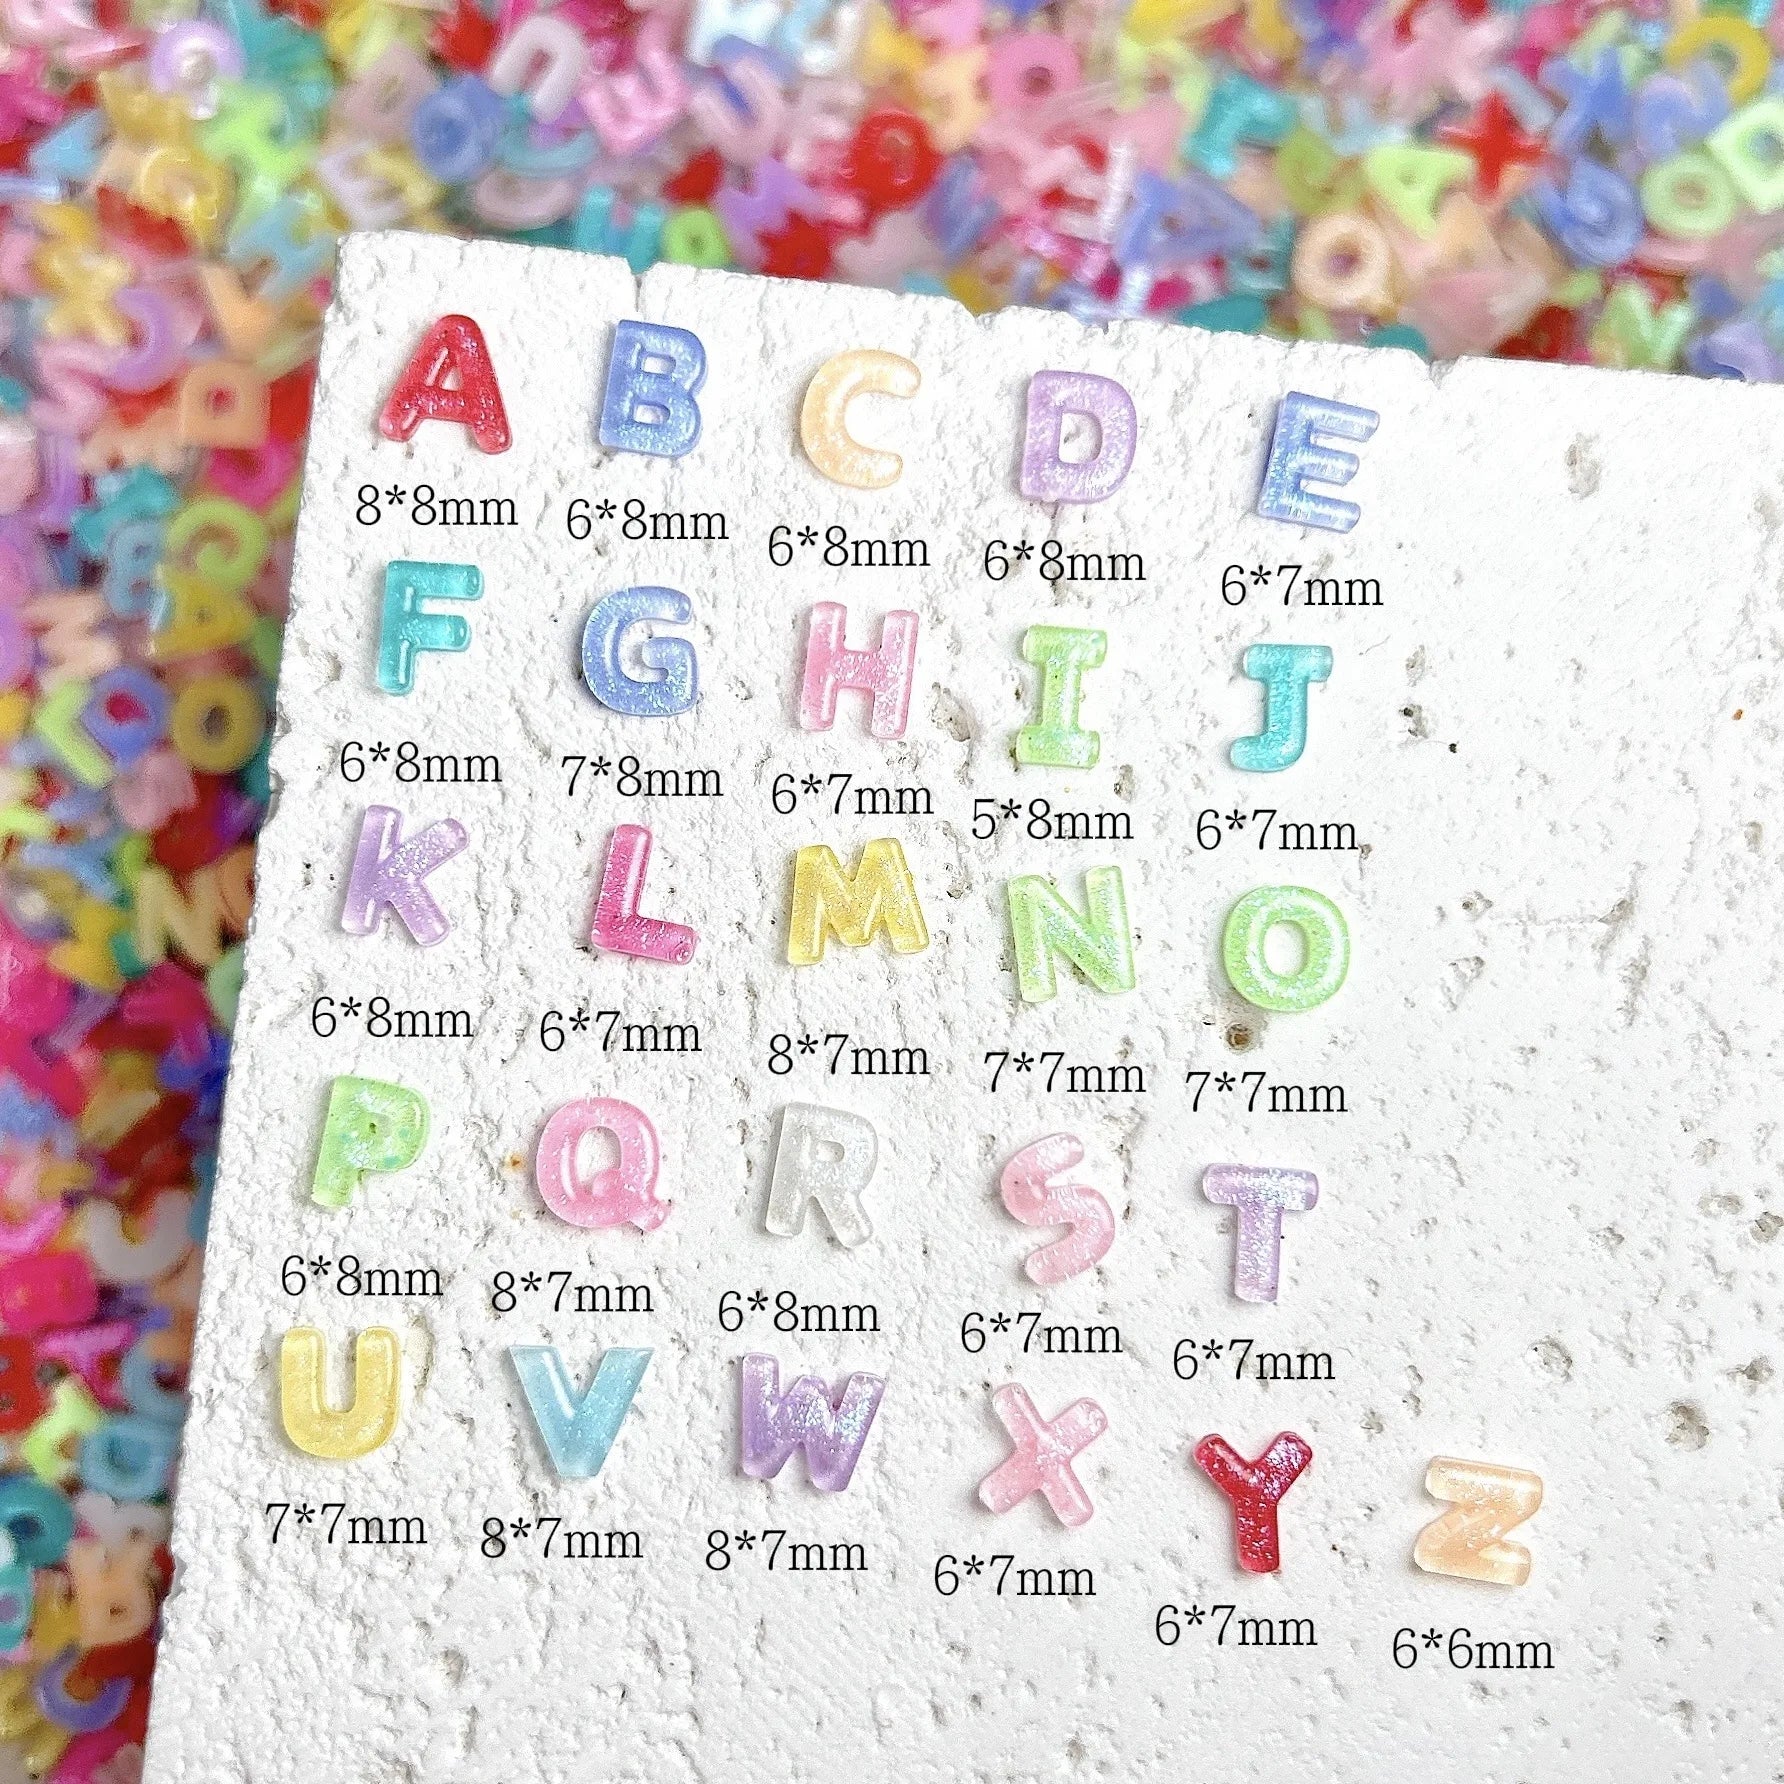 A B C D E
8*8mm 6*8mm 6*8mm 6*8mm 6*7mm
F G H I J
6*8mm 7*8mm 6*7mm 5*8mm 6*7mm
K L M N O
6*8mm 6*7mm 8*7mm 7*7mm 7*7mm
P Q R S T
6*8mm 8*7mm 6*8mm 6*7mm 6*7mm
U V W X Y Z
7*7mm 8*7mm 8*7mm 6*7mm 6*7mm 6*6mm